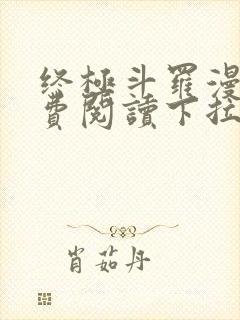 终極斗羅漫
費閱讀下拉
肖茹丹